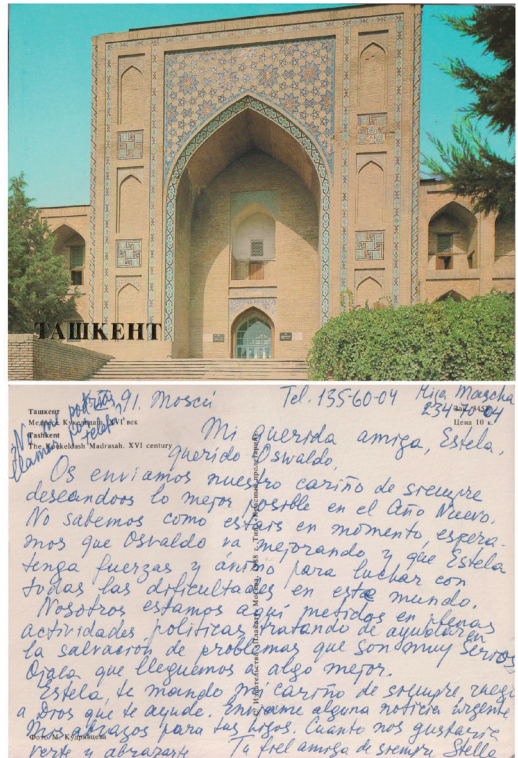 ТАШКЕНТ
91. Moscú
Tel. 135-60-04
Hija Mascha
234-70-04
Цена 10 к.
Ташкент
XVI век
Tashkent
The Kukeldash Madrasah. XVI century
¿No me podrías
llamar por teléf?
Mi querida amiga, Estela,
querido Oswaldo,
Os enviamos nuestro cariño de siempre
deseandoos lo mejor posible en el Año Nuevo.
No sabemos como estáis en momento, espera-
mos que Osvaldo va mejorando y que Estela
tenga fuerzas y ánimo para luchar con
todas las dificultades en este mundo.
Nosotros estamos aquí metidos en plenas
actividades políticas tratando de ayudar en
la salvación de problemas que son muy serios
Ojala que lleguemos a algo mejor.
Estela, te mando mi cariño de siempre, ruego
a Dios que te ayude. Enviame alguna noticia urgente
Mis abrazos para tus hijos. Cuanto nos gustaría
verte y abrazarte
Tu fiel amiga de siempre Stella
Фото М. Кудрявцева